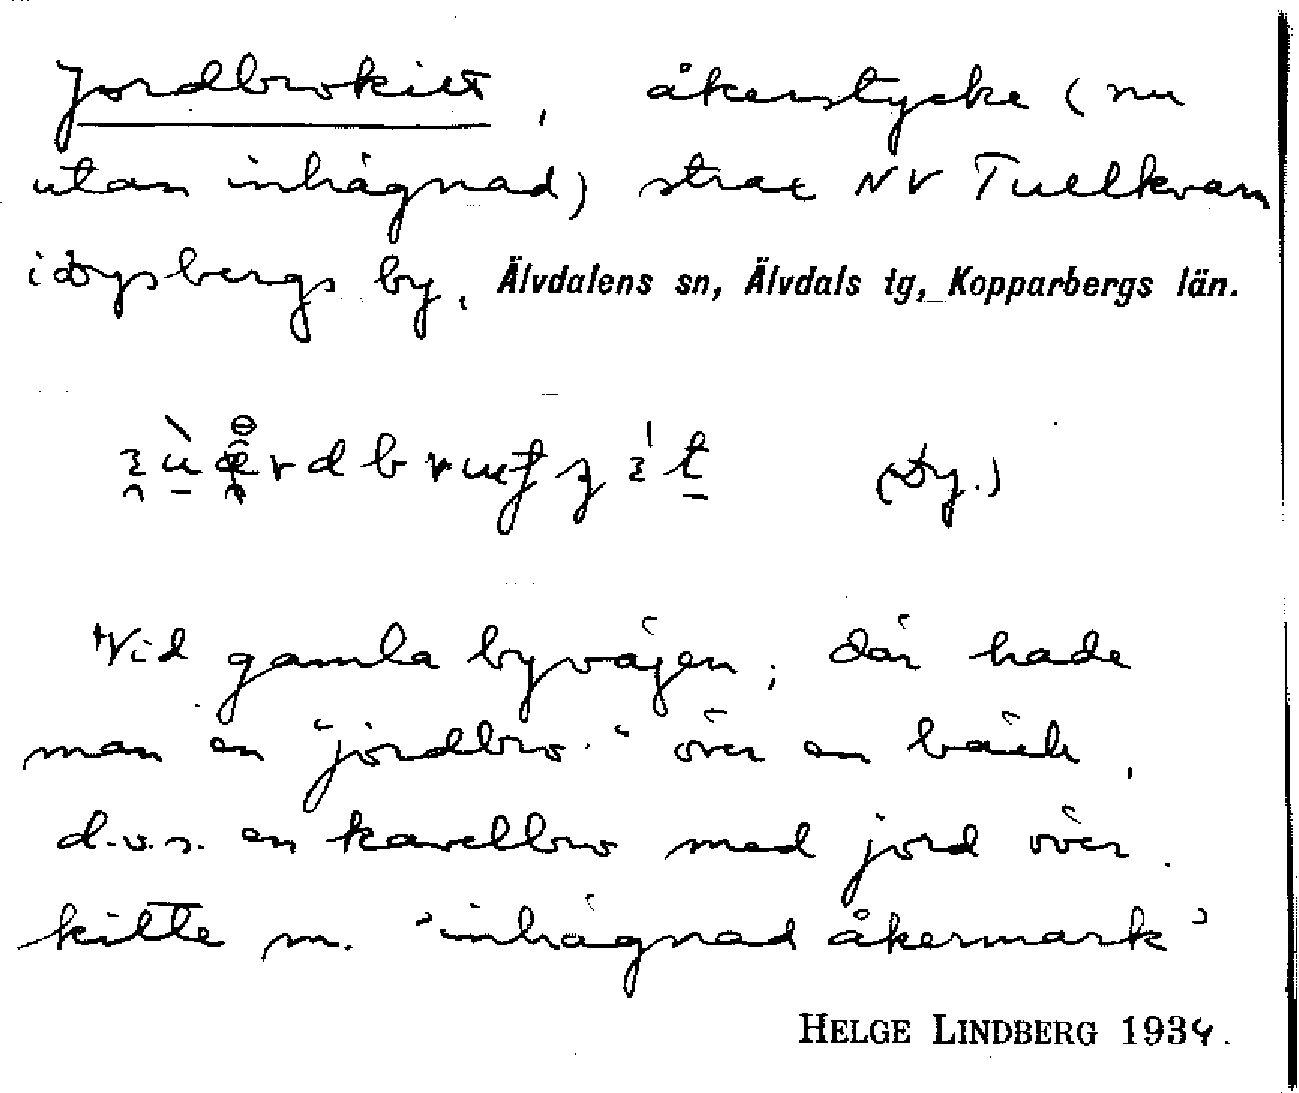 Jordbrokitt, åkerstycke (nu
utan inhägnad) strax NV Tullkvarn
i Dysbergs by, Älvdalens sn, Älvdals tg, Kopparbergs län.
(Dy.)
Vid gamla byvägen, där hade
man en "jordbro" över en bäck,
d.v.s. en kavelbro med jord över.
kitte m. "inhägnad åkermark"
HELGE LINDBERG 1934.